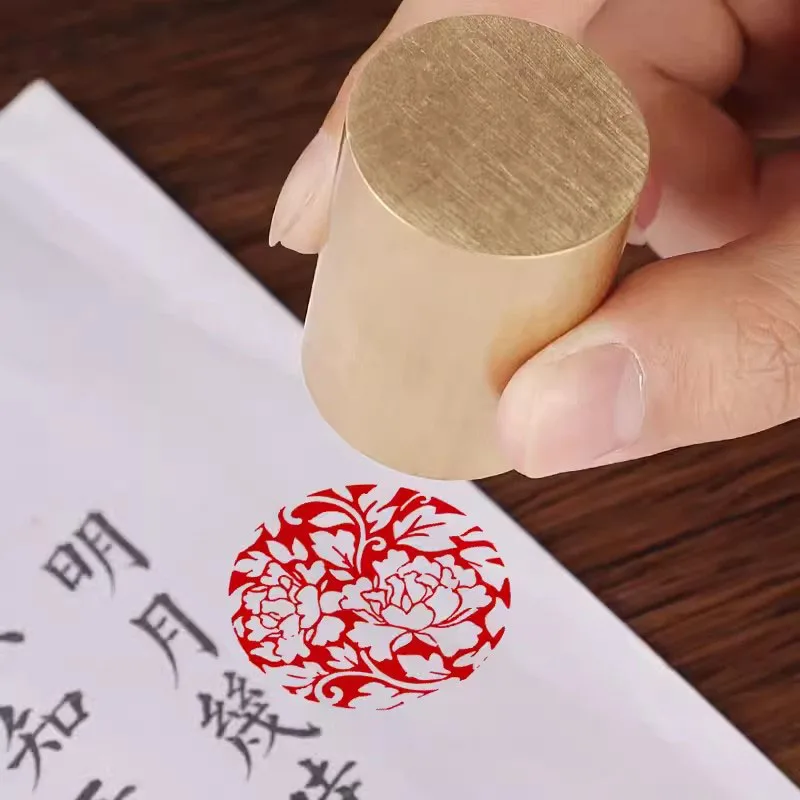 明月幾時
知